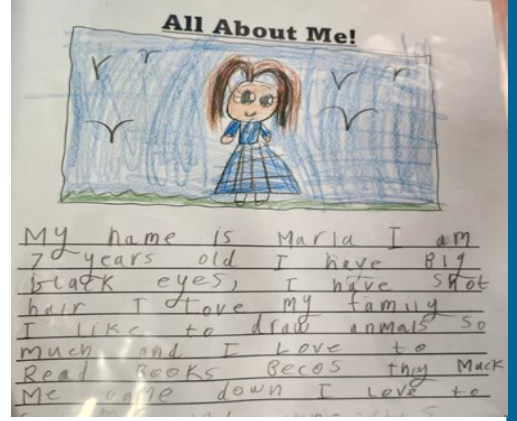 All About Me!
My name is Maria I am
7 years old I have Big
black eyes, I have shot
hair I Love My family
I Like to draw anmals so
much and I Love to
Read Books Becos they Mack
Me down I Love to